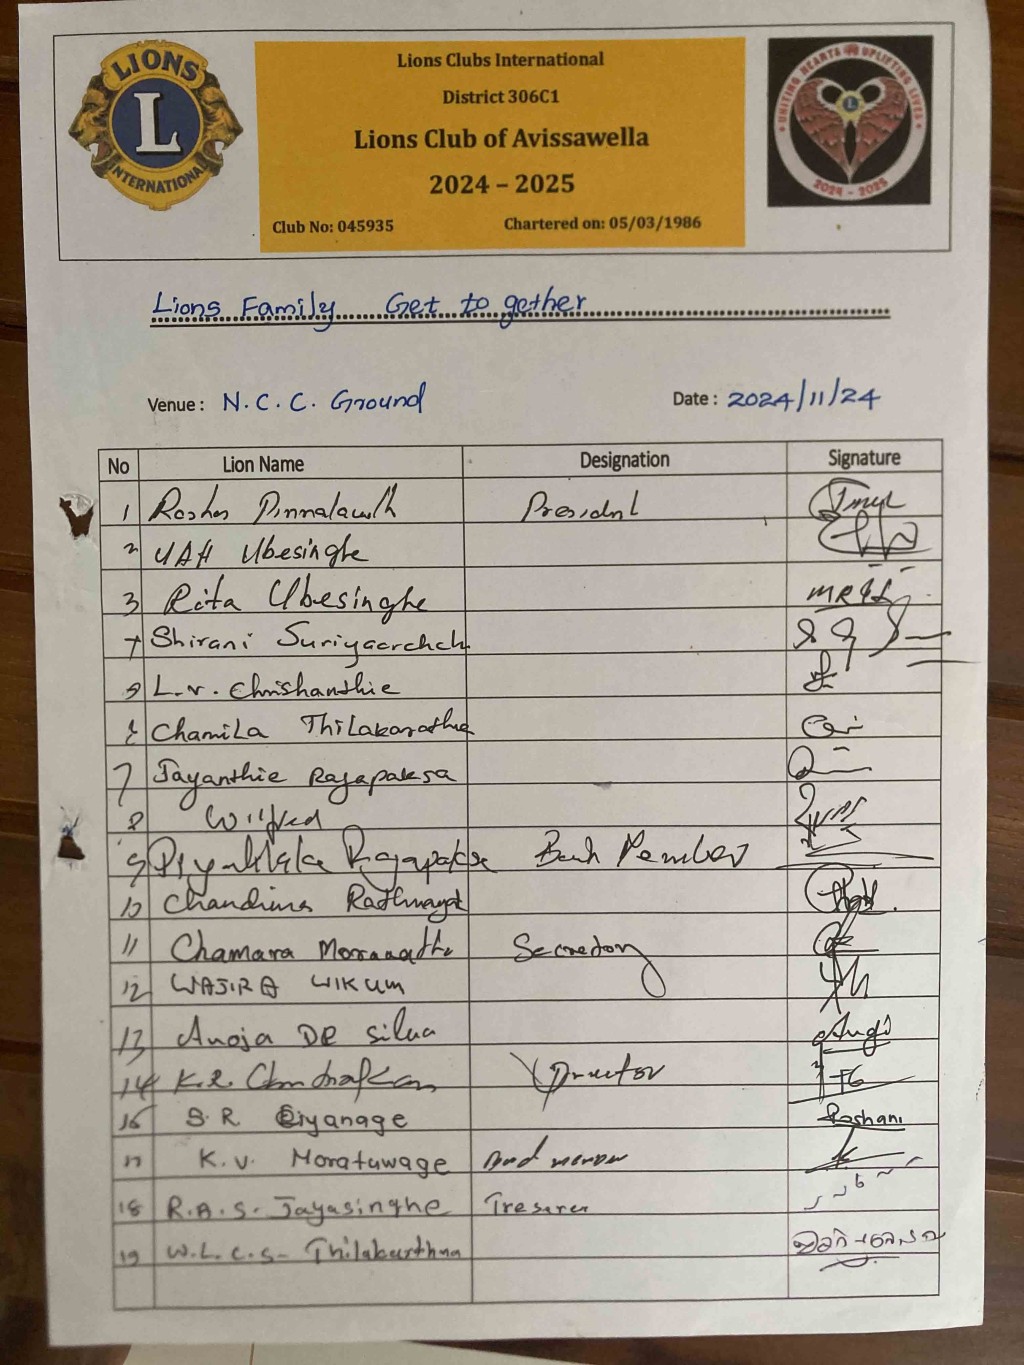 LIONS
L
INTERNATIONAL
Lions Clubs International
District 306C1
Lions Club of Avissawella
2024 – 2025
Club No: 045935 Chartered on: 05/03/1986
UNITING HEARTS UPLIFTING LIVES
2024 - 2025
Lions Family Get to gether
Venue : N.C.C. Ground Date : 2024/11/24
No Lion Name Designation Signature
1 President
2 UAH Ubesinghe
3 Rita Ubesinghe
Shirani
L.V. Chrishanthie
Chamila Thilakarathne
7 Jayanthie Rajapaksa
8 Wilfred
9 Rajapakse
10 Chandima
11 Chamara Secretary
12 WAJIRA WIKUM
13 Anoja DE Silva
14 K.R. Director
16 S.R Liyanage Roshani
17 K.V. Moratuwage
18 R.A.S. Jayasinghe Tresurer
19 W.L.C.S-